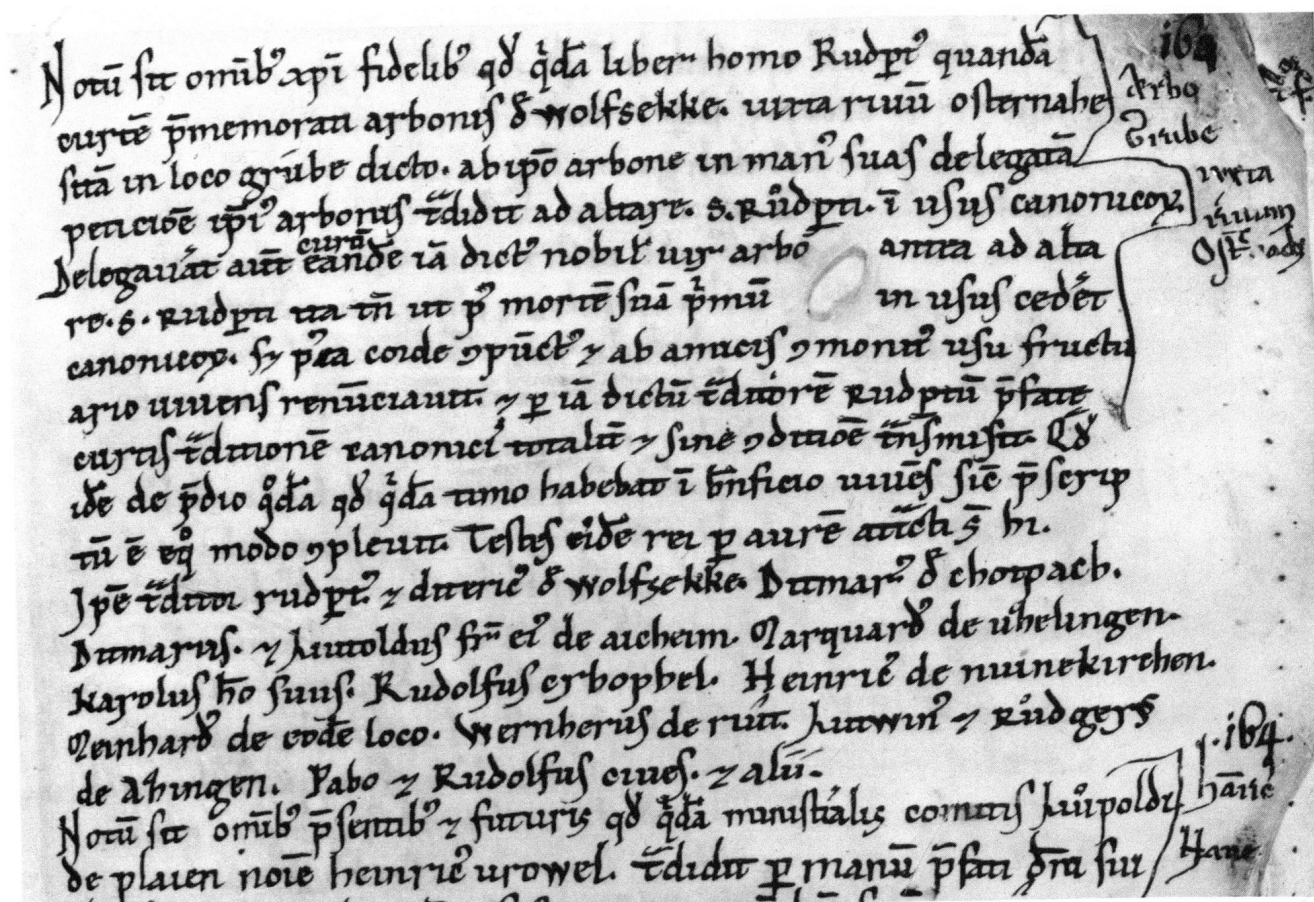 Notū sit omib᷒ xpi fidelib᷒ qđ qͥdā liber homo Rudp̱t᷒ quandā
curtē p̄memorati arbonis đ wolfsekke. iuxta riuū osternahe
sitā in loco grůbe dicto. ab ip̄o arbone in man᷒ suas delegatā
peticiōe ip̄i᷒ arbonis tͣdidit ad altare. s. Růdp̱ti. ī usus canonicoꝝ.
Delegauāt aut̄ eandē curtī iā dict᷒ nobil̄ uir arbo antea ad alta
re. s. Rudp̱ti ita tn̄ ut p᷒ mortē suā pͥmū in usus cedēt
canonicoꝝ. sꝫ p᷒ea corde ꝯpūct᷒ ⁊ ab amicis ꝯmonit᷒ usu fructu
ario uiuens renūciauit. ⁊ p̱ iā dictū tͣditorē Rudp̱tū p̄fate
curtis tͣditionē canonicis totalit̄ ⁊ sine ꝯditiōe tͣnsmisit. Qđ
idē de p̄dio qͦdā qđ qͥdā timo habebat ī bn̄ficio uiuēs sic̄ p̄scrip
tū ē eqͦ modo ꝯpleuit. Testes eidē rei p̱ aurē attͣcti s̄ hi.
Ipse tͣditor rudp̱t᷒ ⁊ diteric᷒ đ wolfsekke. Ditmar᷒ đ chotpach.
Ditmarus. ⁊ Liutoldus fr̄ ei᷒ de aicheim. Marquarđ de uͦbelingen.
Karolus ho suus. Rudolfus erbophel. Heinric᷒ de niunekirchen.
Meinharđ de eodē loco. Wernherus de riut. Liutwin᷒ ⁊ Růdgers
de Ahingen. Pabo ⁊ Rudolfus ciues. ⁊ alii.
Notū sit omib᷒ p̄sentib᷒ ⁊ futuris qđ qͥdā ministialis comitis Liupoldi
de plaien noīe heinric᷒ urowel. tͣdidit p̱ manū p̄fati dn̄i sui
164
Arbo
Grube
iuxta
riuum
164.
Hauē